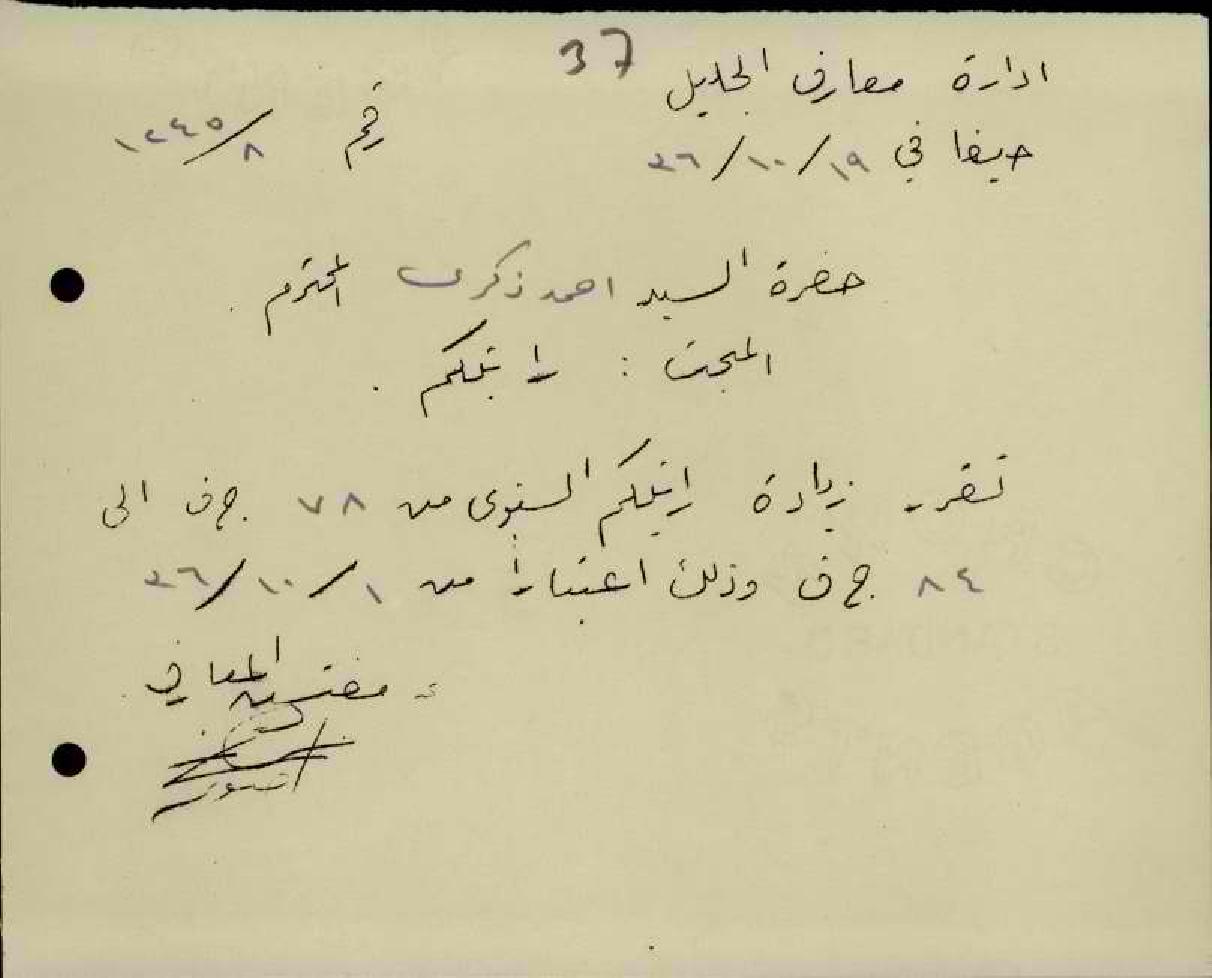 37
ادارة معارف الجليل
حيفا في ١٩/١٠/٣٦ رقم ٨/١٢٤٥
حضرة السيد احمد زكريا المحترم
المبحث : راتبكم .
تقرر زيادة راتبكم السنوى من ٧٨ ج ف الى
٨٤ ج ف وذلك اعتباراً من ١/١٠/٣٦
مفتش المعارف